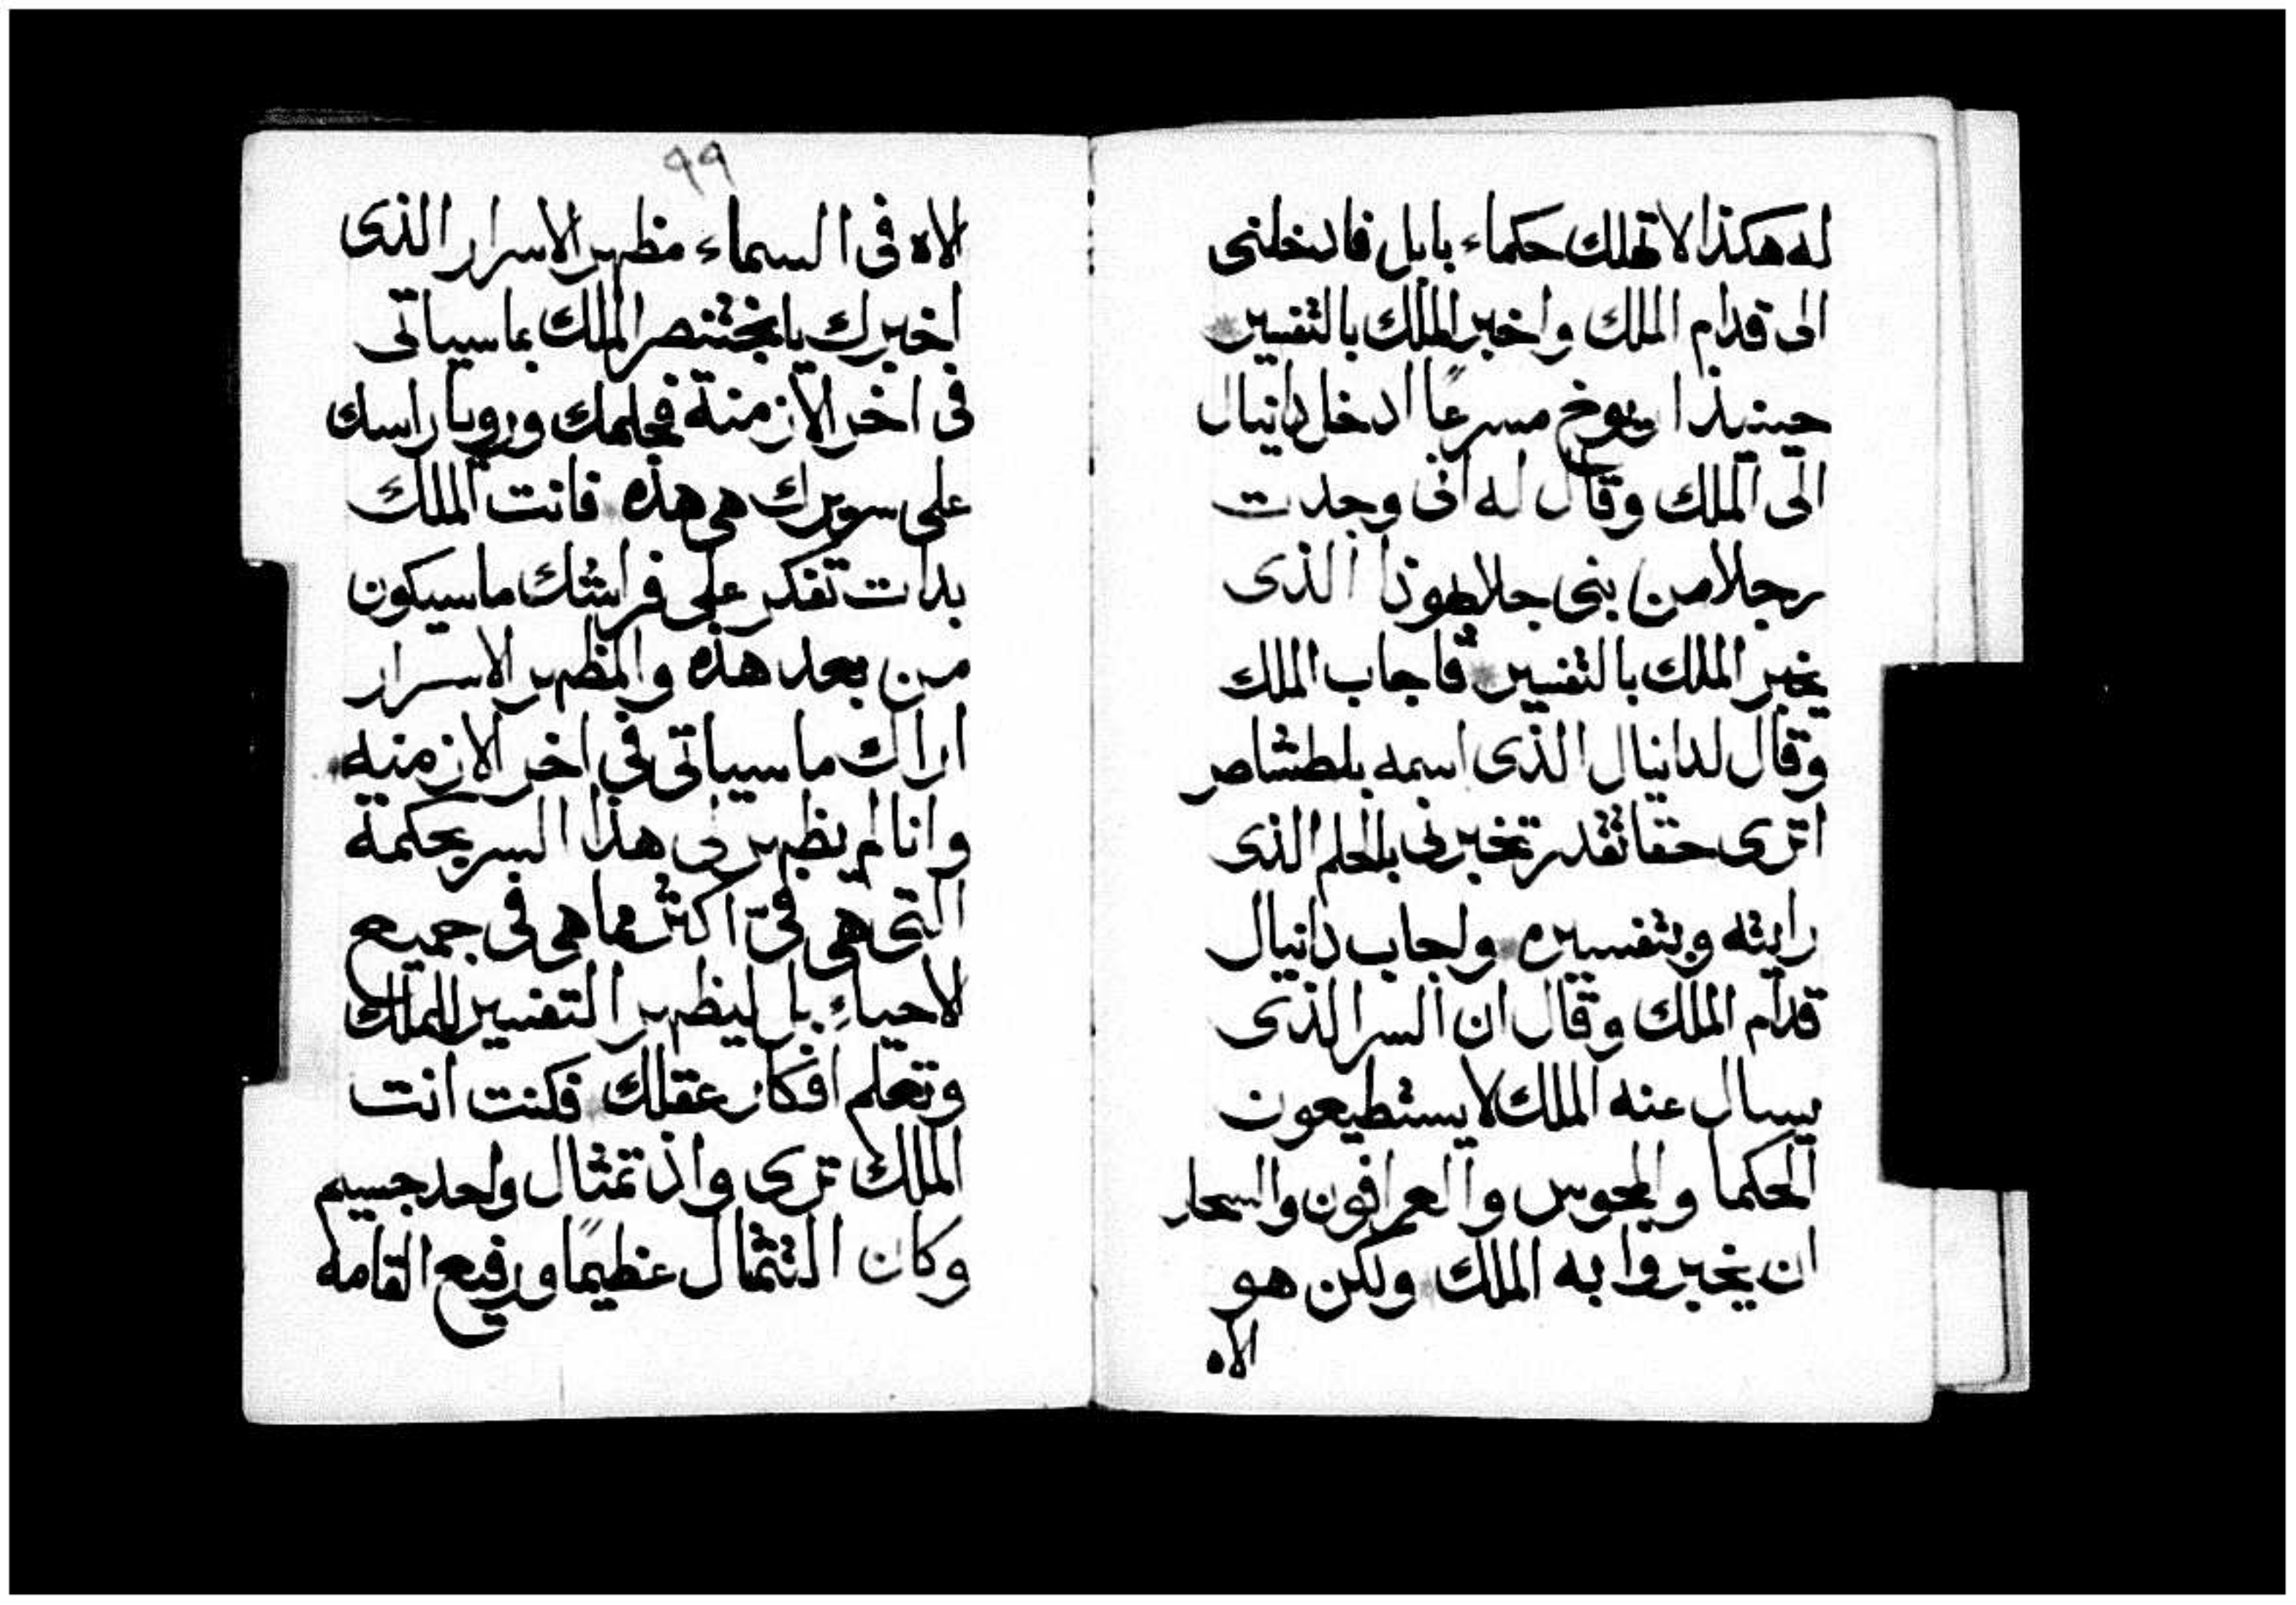 له هكذا لا تهلك حكماء بابل فادخلنى
الى قدام الملك واخبر الملك بالتفسير
حينيذ اريوخ مسرعًا ادخل دانيال
الى الملك وقال له انى وجدت
رجلا من بنى جلا يهوذا الذى
يخبر الملك بالتفسير فاجاب الملك
وقال لدانيال الذى اسمه بلطشاصر
اترى حقا تقدر تخبرنى بالحلم الذى
رايته وبتفسيره واجاب دانيال
قدام الملك وقال ان السر الذى
يسال عنه الملك لا يستطيعون
الحكما والمجوس والعرافون والسحار
ان يخبروا به الملك ولكن هو
الاه
٩٩
الاه فى السماء مظهر الاسرار الذى
اخبرك يا بختنصر الملك بما سياتى
فى اخر الازمنة فحلمك ورويا راسك
على سريرك هى هذه فانت الملك
بدات تفكر على فراشك ما سيكون
من بعد هذه والمظهر الاسرار
اراك ما سياتى فى اخر الازمنيه
وانا لم يظهر لى هذا السر بحكمة
التى هى فىّ اكثر مما هى فى جميع
الاحياءِ بل ليظهر التفسير للملك
وتعلم افكار عقلك فكنت انت
الملك ترى واذ تمثال واحد جسيم
وكان التمثال عظيمًا ورفيع القامه